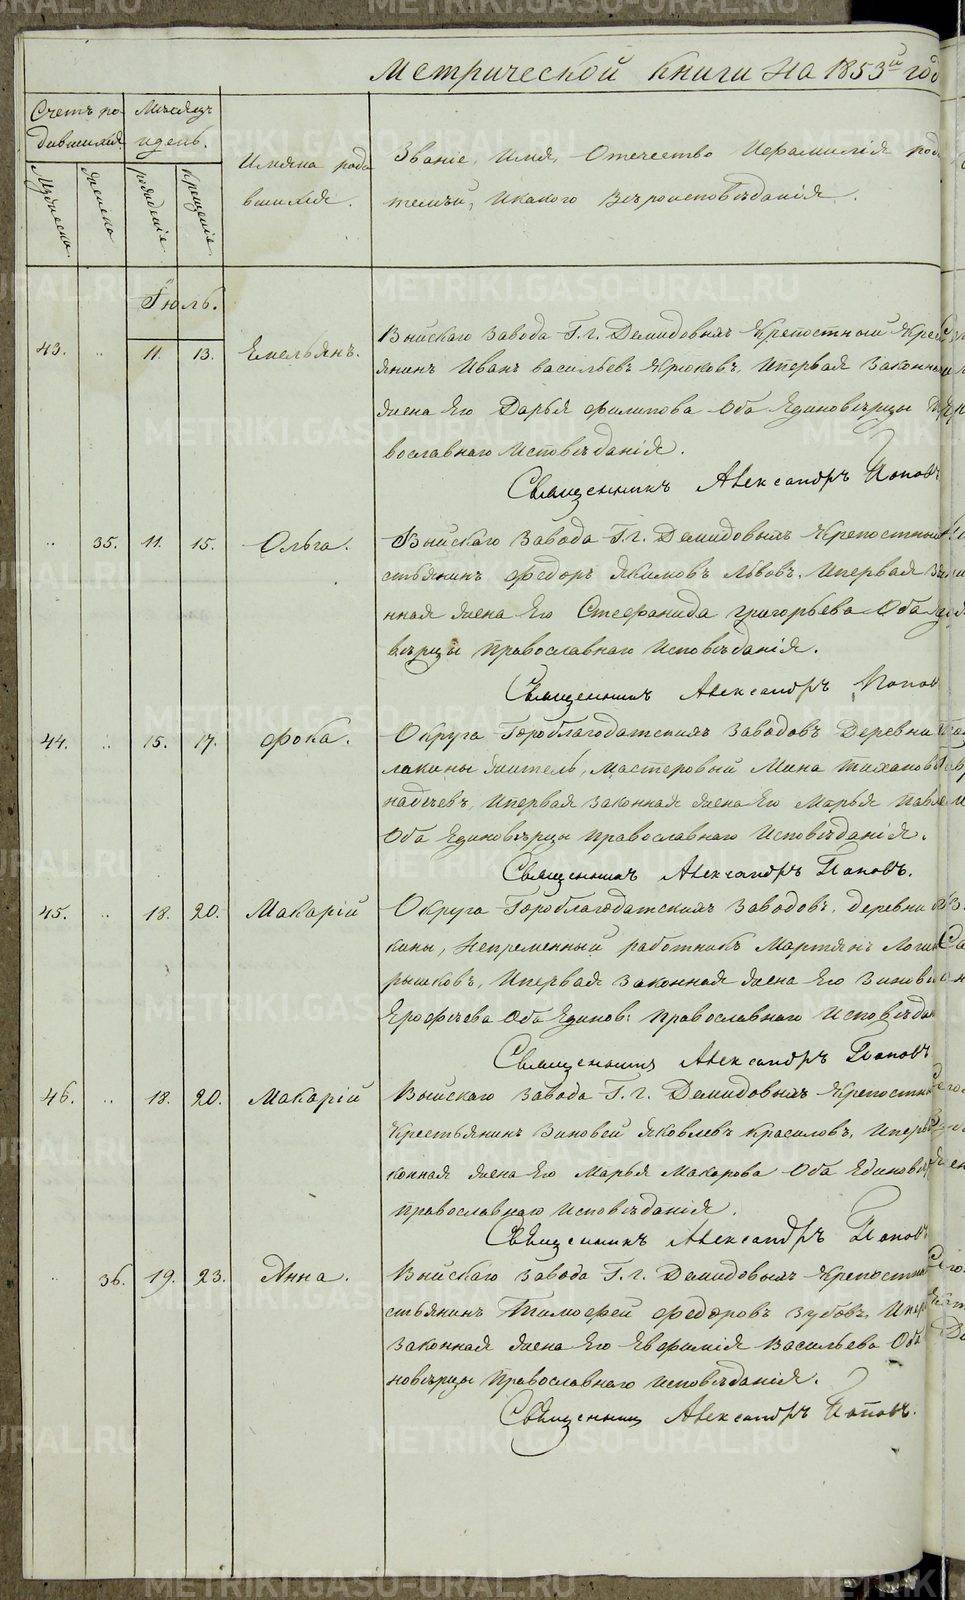 Метрической книги на 1853й год
Счетъ ро- Мѣсяцъ
дившихся и день.
Имяна роди
вшихся.
Званіе, Имя, Отечество и Фамилія роди
телей, и какого Вѣроисповѣданія.
Мужеска женска рожденіе крещеніе
Іюль.
43. „ 11. 13. Емельянъ.
Выйскаго завода Г.г. Демидовыхъ Крепостный Крест
янинъ Иванъ васильевъ Крюковъ, И первая законная
жена Его Дарья филипова Оба Единовѣрцы Пра
вославнаго исповѣданія.
Священникъ Александръ Поповъ
„ 35. 11. 15. Ольга.
Выйскаго завода Г.г. Демидовыхъ Крепостный
стьянинъ Федоръ Якимовъ Львовъ, И первая Зако
нная жена Его Стефанида григорьева Оба Едино
вѣрцы православнаго исповѣданія.
Священникъ Александръ Попов
44. „ 15. 17. Фока.
Округа Гороблагодатскихъ заводовъ Деревни
лакины житель, Мастеровый Мина Тиханов
надѣевъ, И первая законная жена Его Марья Павло
Оба Единовѣрцы православнаго исповѣданія.
Священникъ Александръ Поповъ.
45. „ 18. 20. Макарій
Округа Гороблагодатскихъ заводовъ, деревни
кины, Непременный работникъ Мартянъ Логин
рышковъ, И первая законная жена Его Зинові
Ерофѣева Оба Единов: православнаго исповѣдан
Священникъ Александръ Поповъ
46. „ 18. 20. Макарій
Выйскаго завода Г.г. Демидовыхъ Крепостны
Крестьянинъ Зиновей Яковлевъ Красиловъ, И перв
конная жена Его Марья Макарова Оба Единовѣр
православнаго исповѣданія.
Священникъ Александръ Поповъ
„ 36. 19. 23. Анна.
Выйскаго завода Г.г. Демидовыхъ Крепостны
стьянинъ Тимофей федоровъ Зубовъ, И пер
законная жена Его Евфимія Васильева Оба
новѣрцы православнаго исповѣданія.
Священникъ Александръ Поповъ.
METRIKI.GASO-URAL.RU